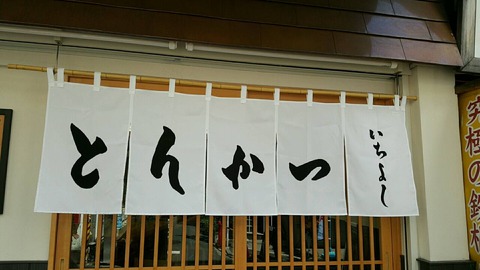 とんかつ
いちよし
究極の